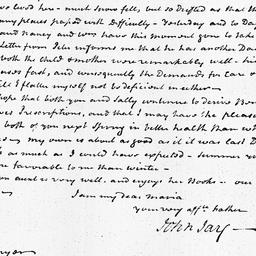 two lines here - much snow fell, but so drifted as that the
many places passed with difficulty - Yesterday and to Day
and Nancy and was have this moment gone to take
Letter from informs me that he has another Dau
both the child & mother were remarkably well - his
eases fast, and consequently the Demands for care o
Will I flatter myself not be deficient in either -
hope that both you and Sally continue to derive Ben
ves Prescriptions, and that I may have the pleasu
both of you next Spring in better health than wh
us my own is about as good as it was last D
is as much as I could have expected - summer w
re favorable to me than winter -
on aunt is very well, and enjoys her Books - our
I am my dear Maria
your very affte. father
John Jay -